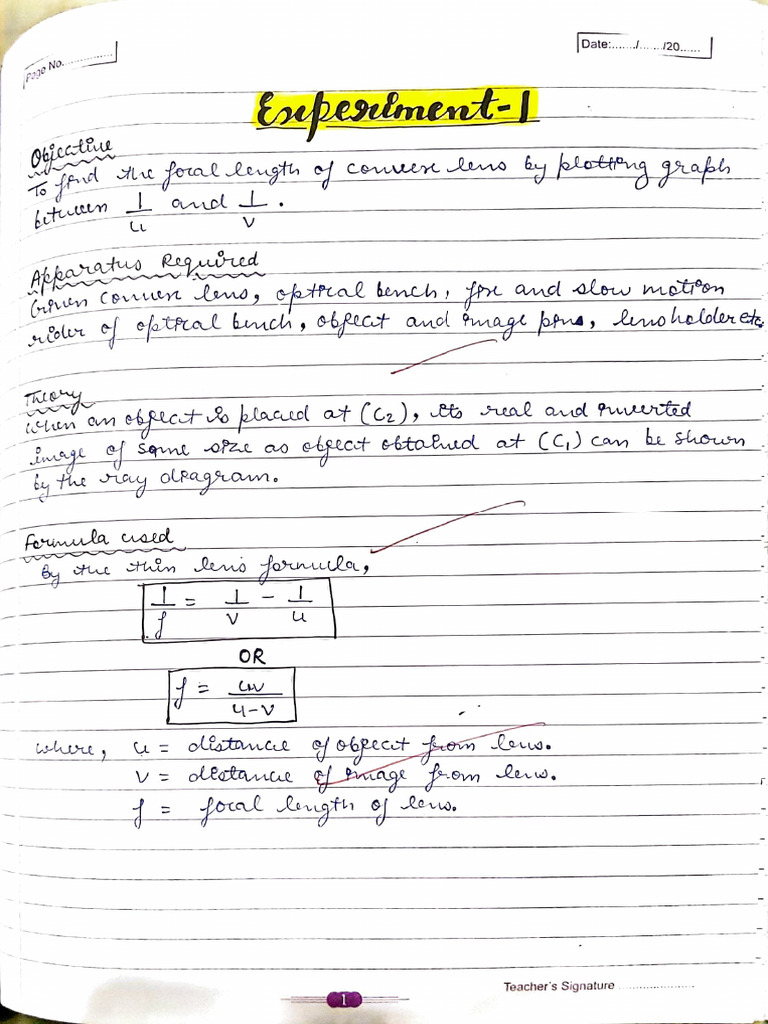 Page No. ...............
Date:....../......./20......
Experiment-1
Objective
To find the focal length of convex lens by plotting graph
between 1/u and 1/v.
Apparatus Required
Given convex lens, optical bench, fix and slow motion
rider of optical bench, object and image pins, lens holder etc.
Theory
When an object is placed at (C₂), its real and inverted
image of same size as object obtained at (C₁) can be shown
by the ray diagram.
Formula used
By the thin lens formula,
1/f = 1/v - 1/u
OR
f = uv/u-v
where, u = distance of object from lens.
v = distance of image from lens.
f = focal length of lens.
Teacher's Signature ........................
1